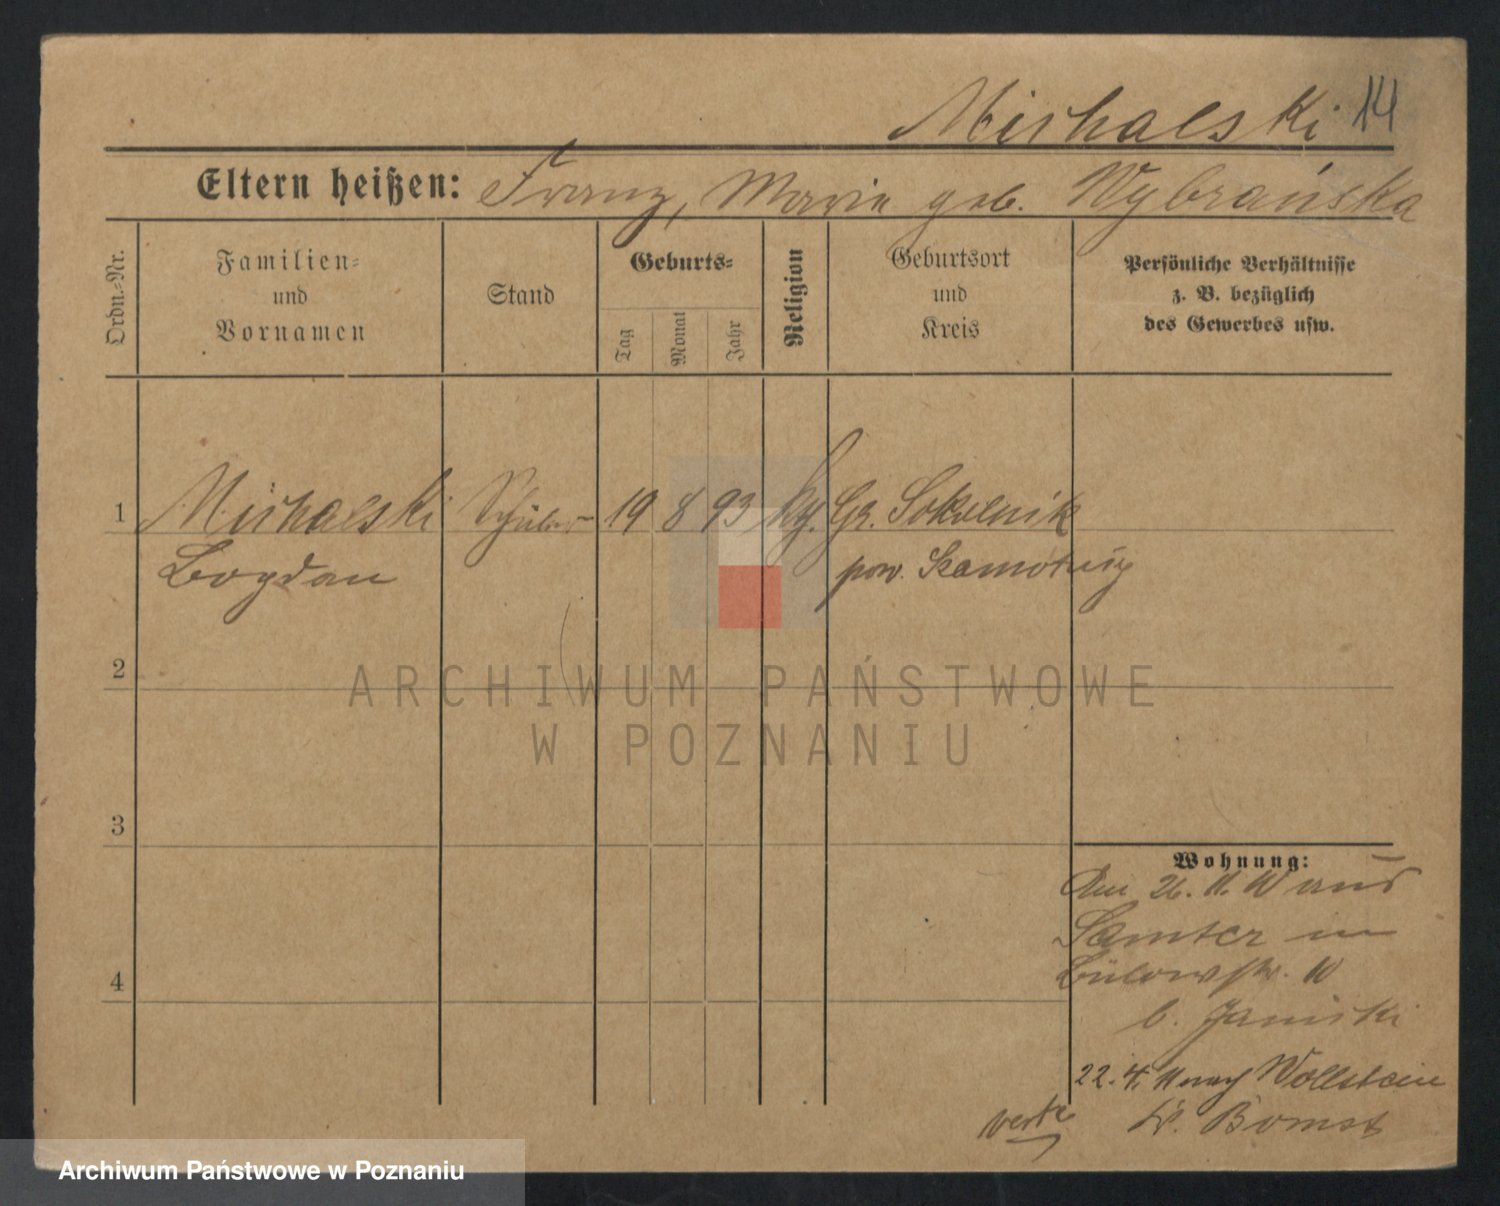 Michalski 14
Eltern heißen: Franz, Marie geb. Wybrańska
Ordn.-Nr.
Familien-
und
Vornamen
Stand
Geburts-
Tag
Monat
Jahr
Religion
Geburtsort
und
Kreis
Persönliche Verhältnisse
z. B. bezüglich
des Gewerbes usw.
1 Michalski Schüler 19 8 93 kg. Gr. Sokolnik
Bogdan pow. Szamotuły
2
ARCHIWUM PAŃSTWOWE
W POZNANIU
3
Wohnung:
Am 26. 11. 10 aus
Samter in
Bülowstr. 10
b. Janiski
4
22. 4. 11 nach Wollstein
Kr. Bomst
Archiwum Państwowe w Poznaniu